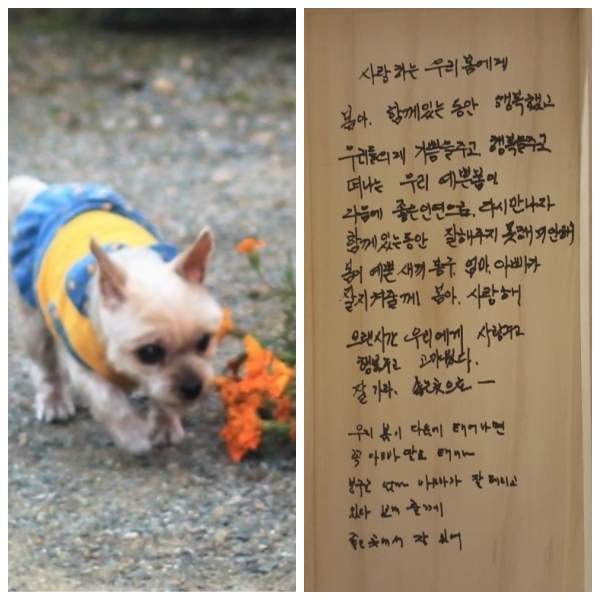 사랑하는 우리 봄에게
봄아. 함께있는 동안 행복했고
우리들에게 기쁨을주고 행복을주고
떠나는 우리 예쁜봄이
다음에 좋은인연으로. 다시만나자
함께 있는동안 잘해주지 못해 미안해
봄이 예쁜 새끼 봉구. 엄마, 아빠가
잘지켜줄게 봄아. 사랑해
오랜시간 우리에게 사랑주고
행복주고 고마웠다.
잘 가라. 좋은곳으로 —
우리 봄이 다음에 태어나면
꼭 아빠 딸로 태어나
봉구는 엄마 아빠가 잘 데리고
있다 보내 줄게
좋은곳에서 잘 있어